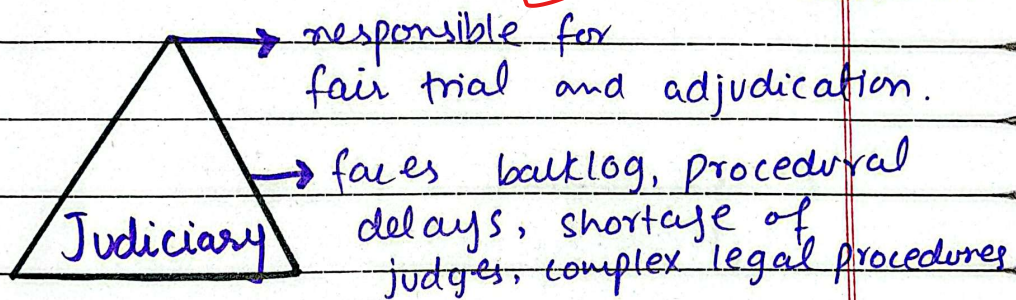 responsible for
fair trial and adjudication.
faces backlog, procedural
delays, shortage of
judges, complex legal procedures
Judiciary